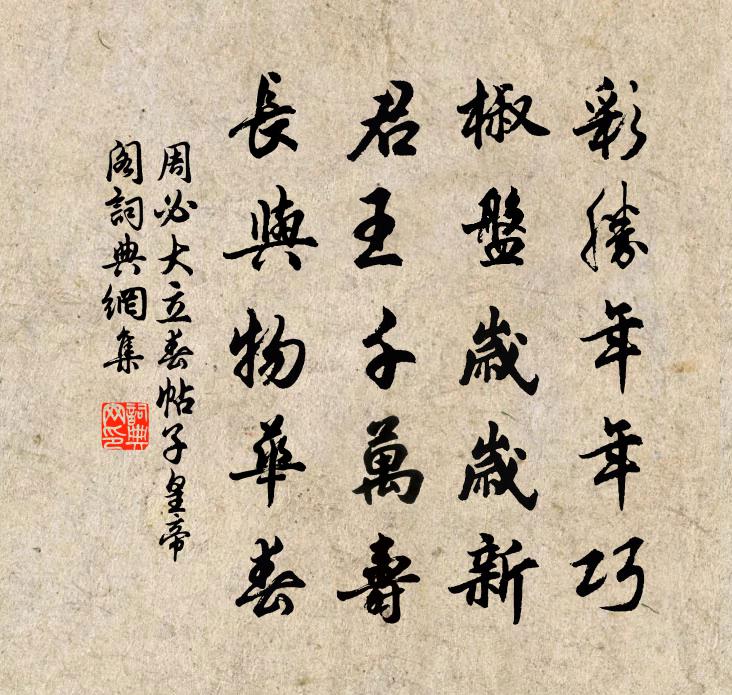 彩勝年年巧
椒盤歲歲新
君王千萬壽
長與物華春
周必大立春帖子皇帝
閣詞典網集
詞典網印